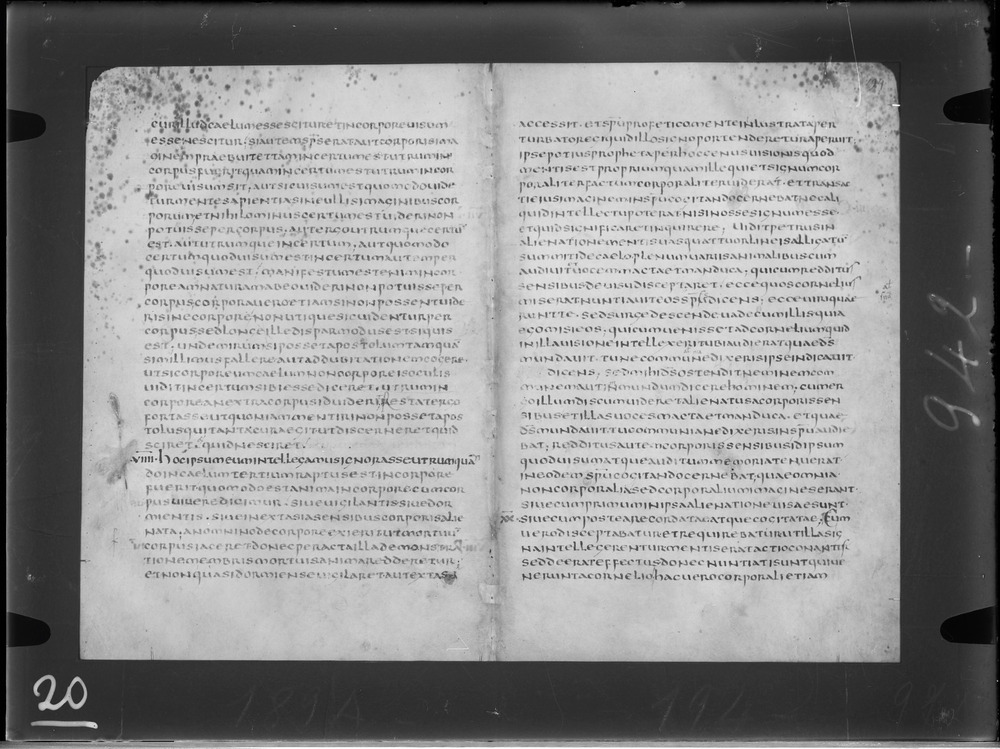 cum illud caelum esse sciret in corpore visum
esse nescitur si autem sp̄s erat aut corporis ima
ginem praebuit et tam incertum est utrum in
corpus fuerit quam incertum est utrum in cor
pore visum sit, aut si visum est quomodo vide
tur mente sapientia sine ullis imaginibus cor
porum et nihilominus certum est videri non
potuisse per corpus, aut ergo utrumque certū
est, aut utrumque incertum, aut quomodo
certum quod visum est incertum autem per
quod visum est, manifestum est enim incor
poream naturam ab eo videri non potuisse per
corpus, corpora vero etiam si non possent vide
ri sine corpore non utique sic videntur per
corpus sed longe ille dispar modus est si quis
est. unde mirum si posset apostolum tam quā
simillimus fallere aut ad dubitationem cogere.
ut si corporeum caelum non corporeis oculis
vidit incertum sibi esse diceret. utrum in
corpore an extra corpus id viderit restat ergo
fortasse ut quoniam mentiri non posset apos
tolus qui tanta cura egit ut discerneret quid
sciret. quid nesciret.
viiii. hoc ipsum eum intellegamus ignorasse utrum quā
do in caelum tertium raptus est in corpore
fuerit quomodo est anima in corpore cum cor
pus vivere dicitur. sive vigilantis sive dor
mientis. sive in extasi a sensibus corporis alie
nata, an omnino de corpore exierit ut mortuū
corpus iaceret donec peracta illa demonstra
tione membris mortuis anima redderetur;
et non quasi dormiens evigilaret aut extasi
accessit. et sp̄u profetico mente inlustrata per
turbatorem quid illos ignoportenderetur aperuit,
ipse potius propheta per hoc genus visionis quod
mentis est proprium quam ille qui et signum cor
poraliter factum corporaliter viderat. et transac
tae eius imaginem in sp̄u cogitando cernebat nec ali
quid intellectu poterat nisi nosse signum esse
et quid significaret inquirere; vidit petrus in
alienatione mentis vas quattuor lineis alligatū
summitti de caelo plenum variis animalibus cum
audivit vocem macta et manduca, qui cum redditus
sensibus de visu disceptaret. ecce quos cornelius
miserat nuntiavit eos sp̄s dicens; ecce viri quae
runt te. sed surge descende vade cum illis quia
ego misi eos, qui cum venisset ad cornelium quid
in illa visione intellexerit ubi audierat quae d̄s
mundavit. tu ne commune dixeris ipse indicavit
dicens, sed mihi d̄s ostendit neminem com
munem aut inmundum dicere hominem, cum er
go illum discum videret alienatus a corporis sen
sibus et illas voces macta et manduca. et quae
d̄s mundavit tu communia ne dixeris in sp̄u audie
bat; redditus autem corporis sensibus id ipsum
quod visum atque auditum memoria tenuerat
in eodem sp̄u cogitando cernebat, quae omnia
non corporalia sed corporalium imagines erant
sive cum primum in ipsa alienatione visa sunt
xx. sive cum postea recordata atque cogitatae, cum
vero disceptabat ut requirebat ut illa sig
na intellegerentur mentis erat actio conantis
sed deerat effectus donec nuntiati sunt qui ve
nerunt a cornelio, hac vero corporali etiam
942 -
20